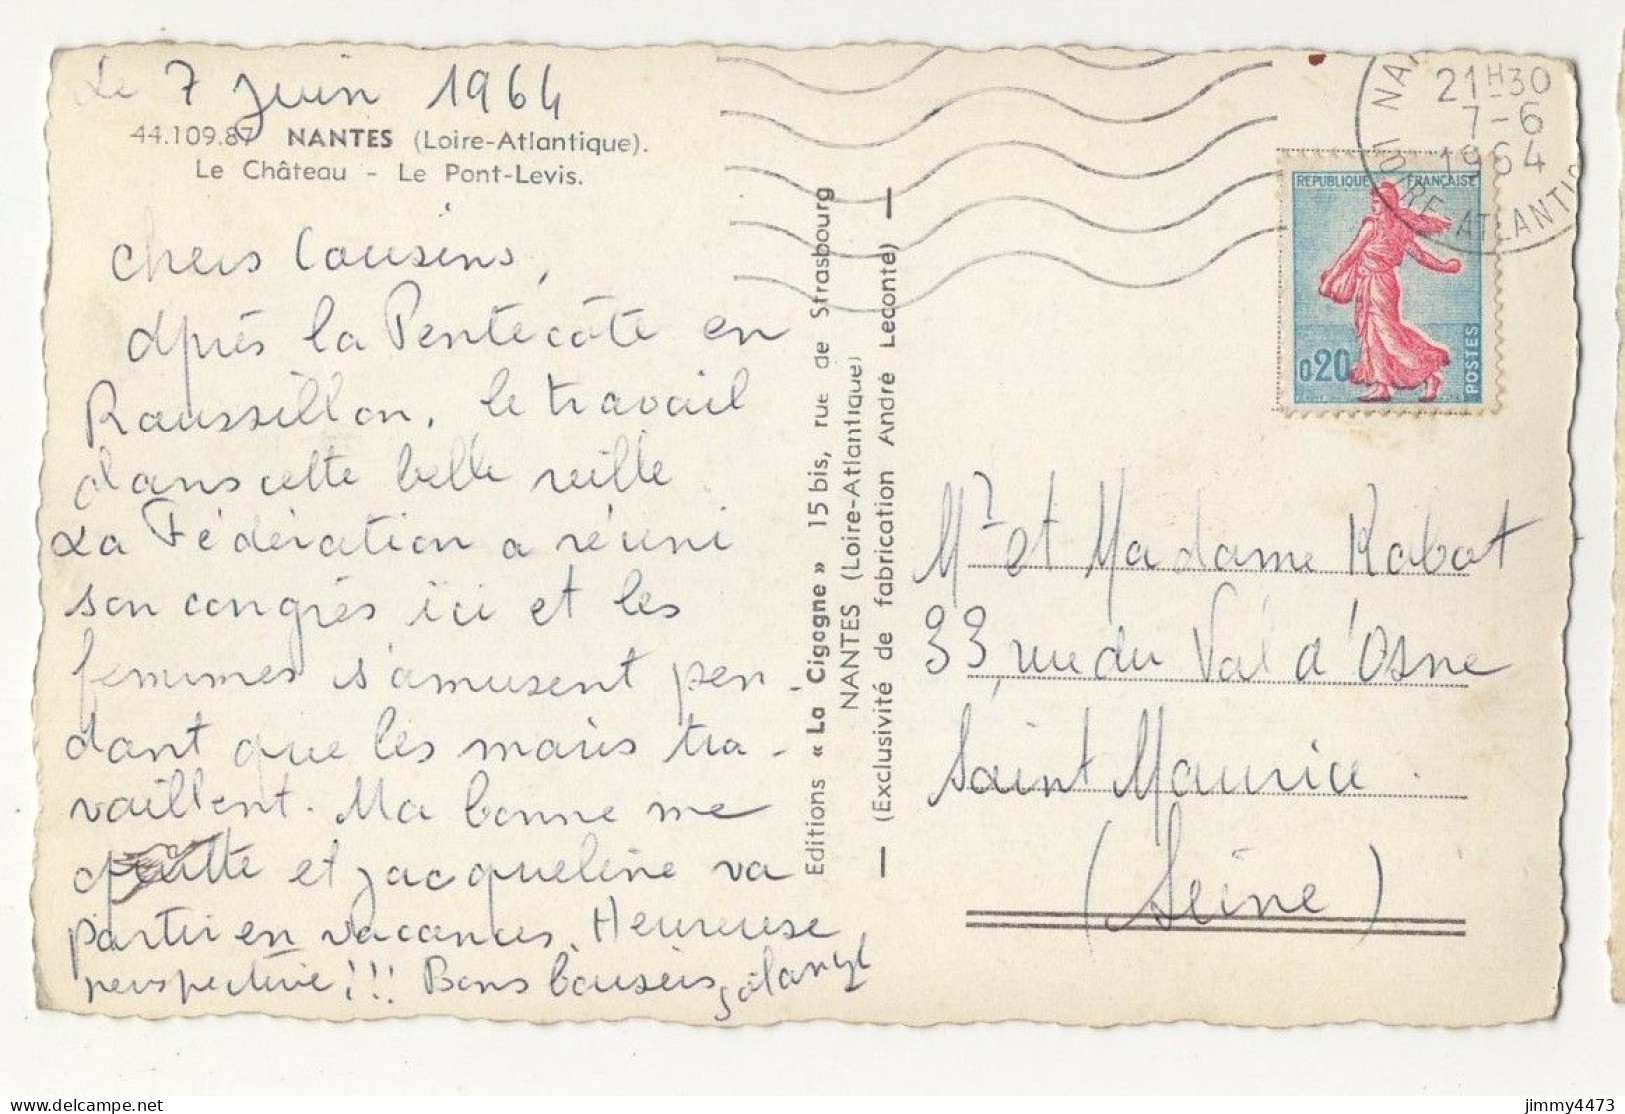 Le 7 Juin 1964
44.109.87 NANTES (Loire-Atlantique).
Le Château - Le Pont-Levis.
chers Cousins,
après la Pentecôte en
Roussillon, le travail
dans cette belle ville
La Fédération a réuni
son congrès ici et les
femmes s'amusent pen-
dant que les maris tra-
vaillent. Ma bonne me
quitte et Jacqueline va
partir en vacances. Heureuse
perspective!!! Bons baisers,
Editions « La Cigogne » 15 bis, rue de Strasbourg
NANTES (Loire-Atlantique)
— (Exclusivité de fabrication André Leconte) —
21H30
7-6
1964
LOIRE-ATLANTIQ
REPUBLIQUE FRANÇAISE
0,20
POSTES
Mr et Madame Rabot
33, rue du Val d'Osne
Saint Maurice.
(Seine)
delcampe.net
jimmy4473